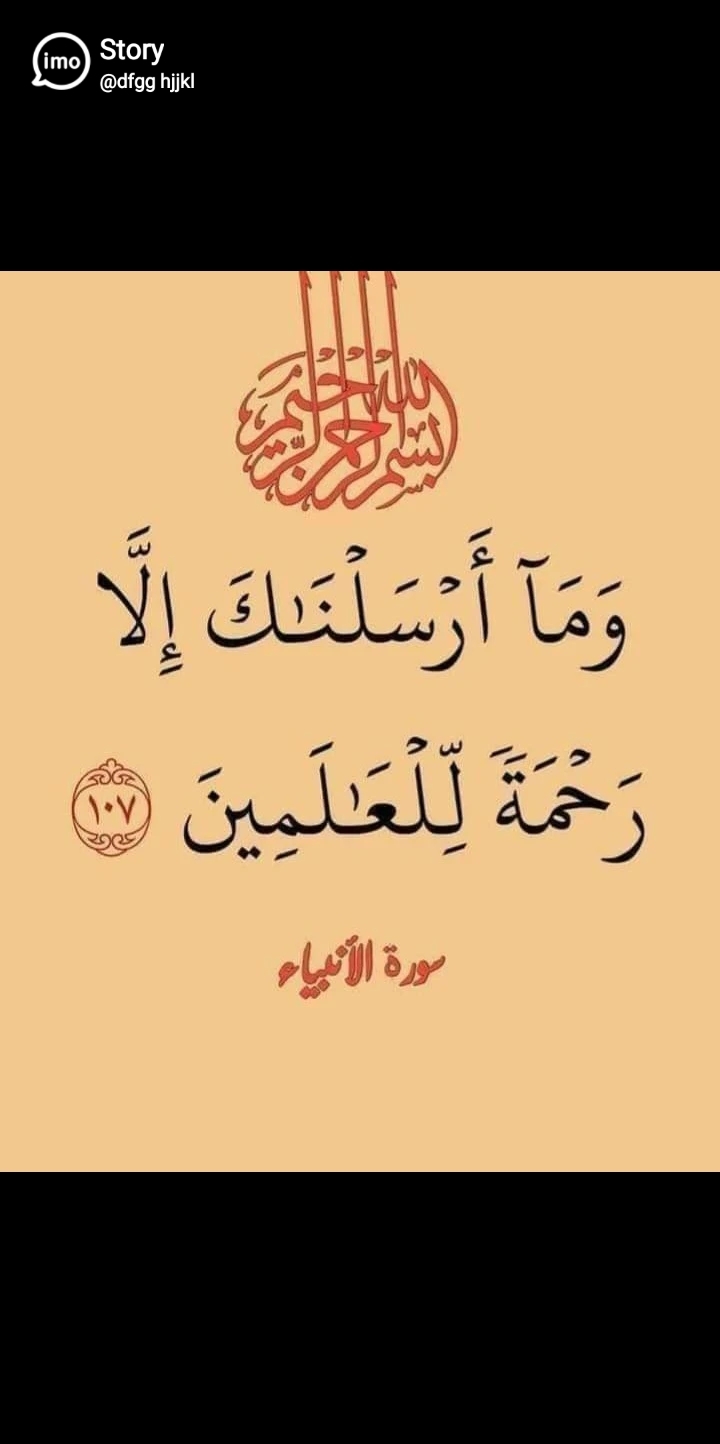 imo
Story
@dfgg hjjkl
بسم الله الرحمن الرحيم
وَمَآ أَرْسَلْنَٰكَ إِلَّا
رَحْمَةً لِّلْعَٰلَمِينَ ١٠٧
سورة الأنبياء